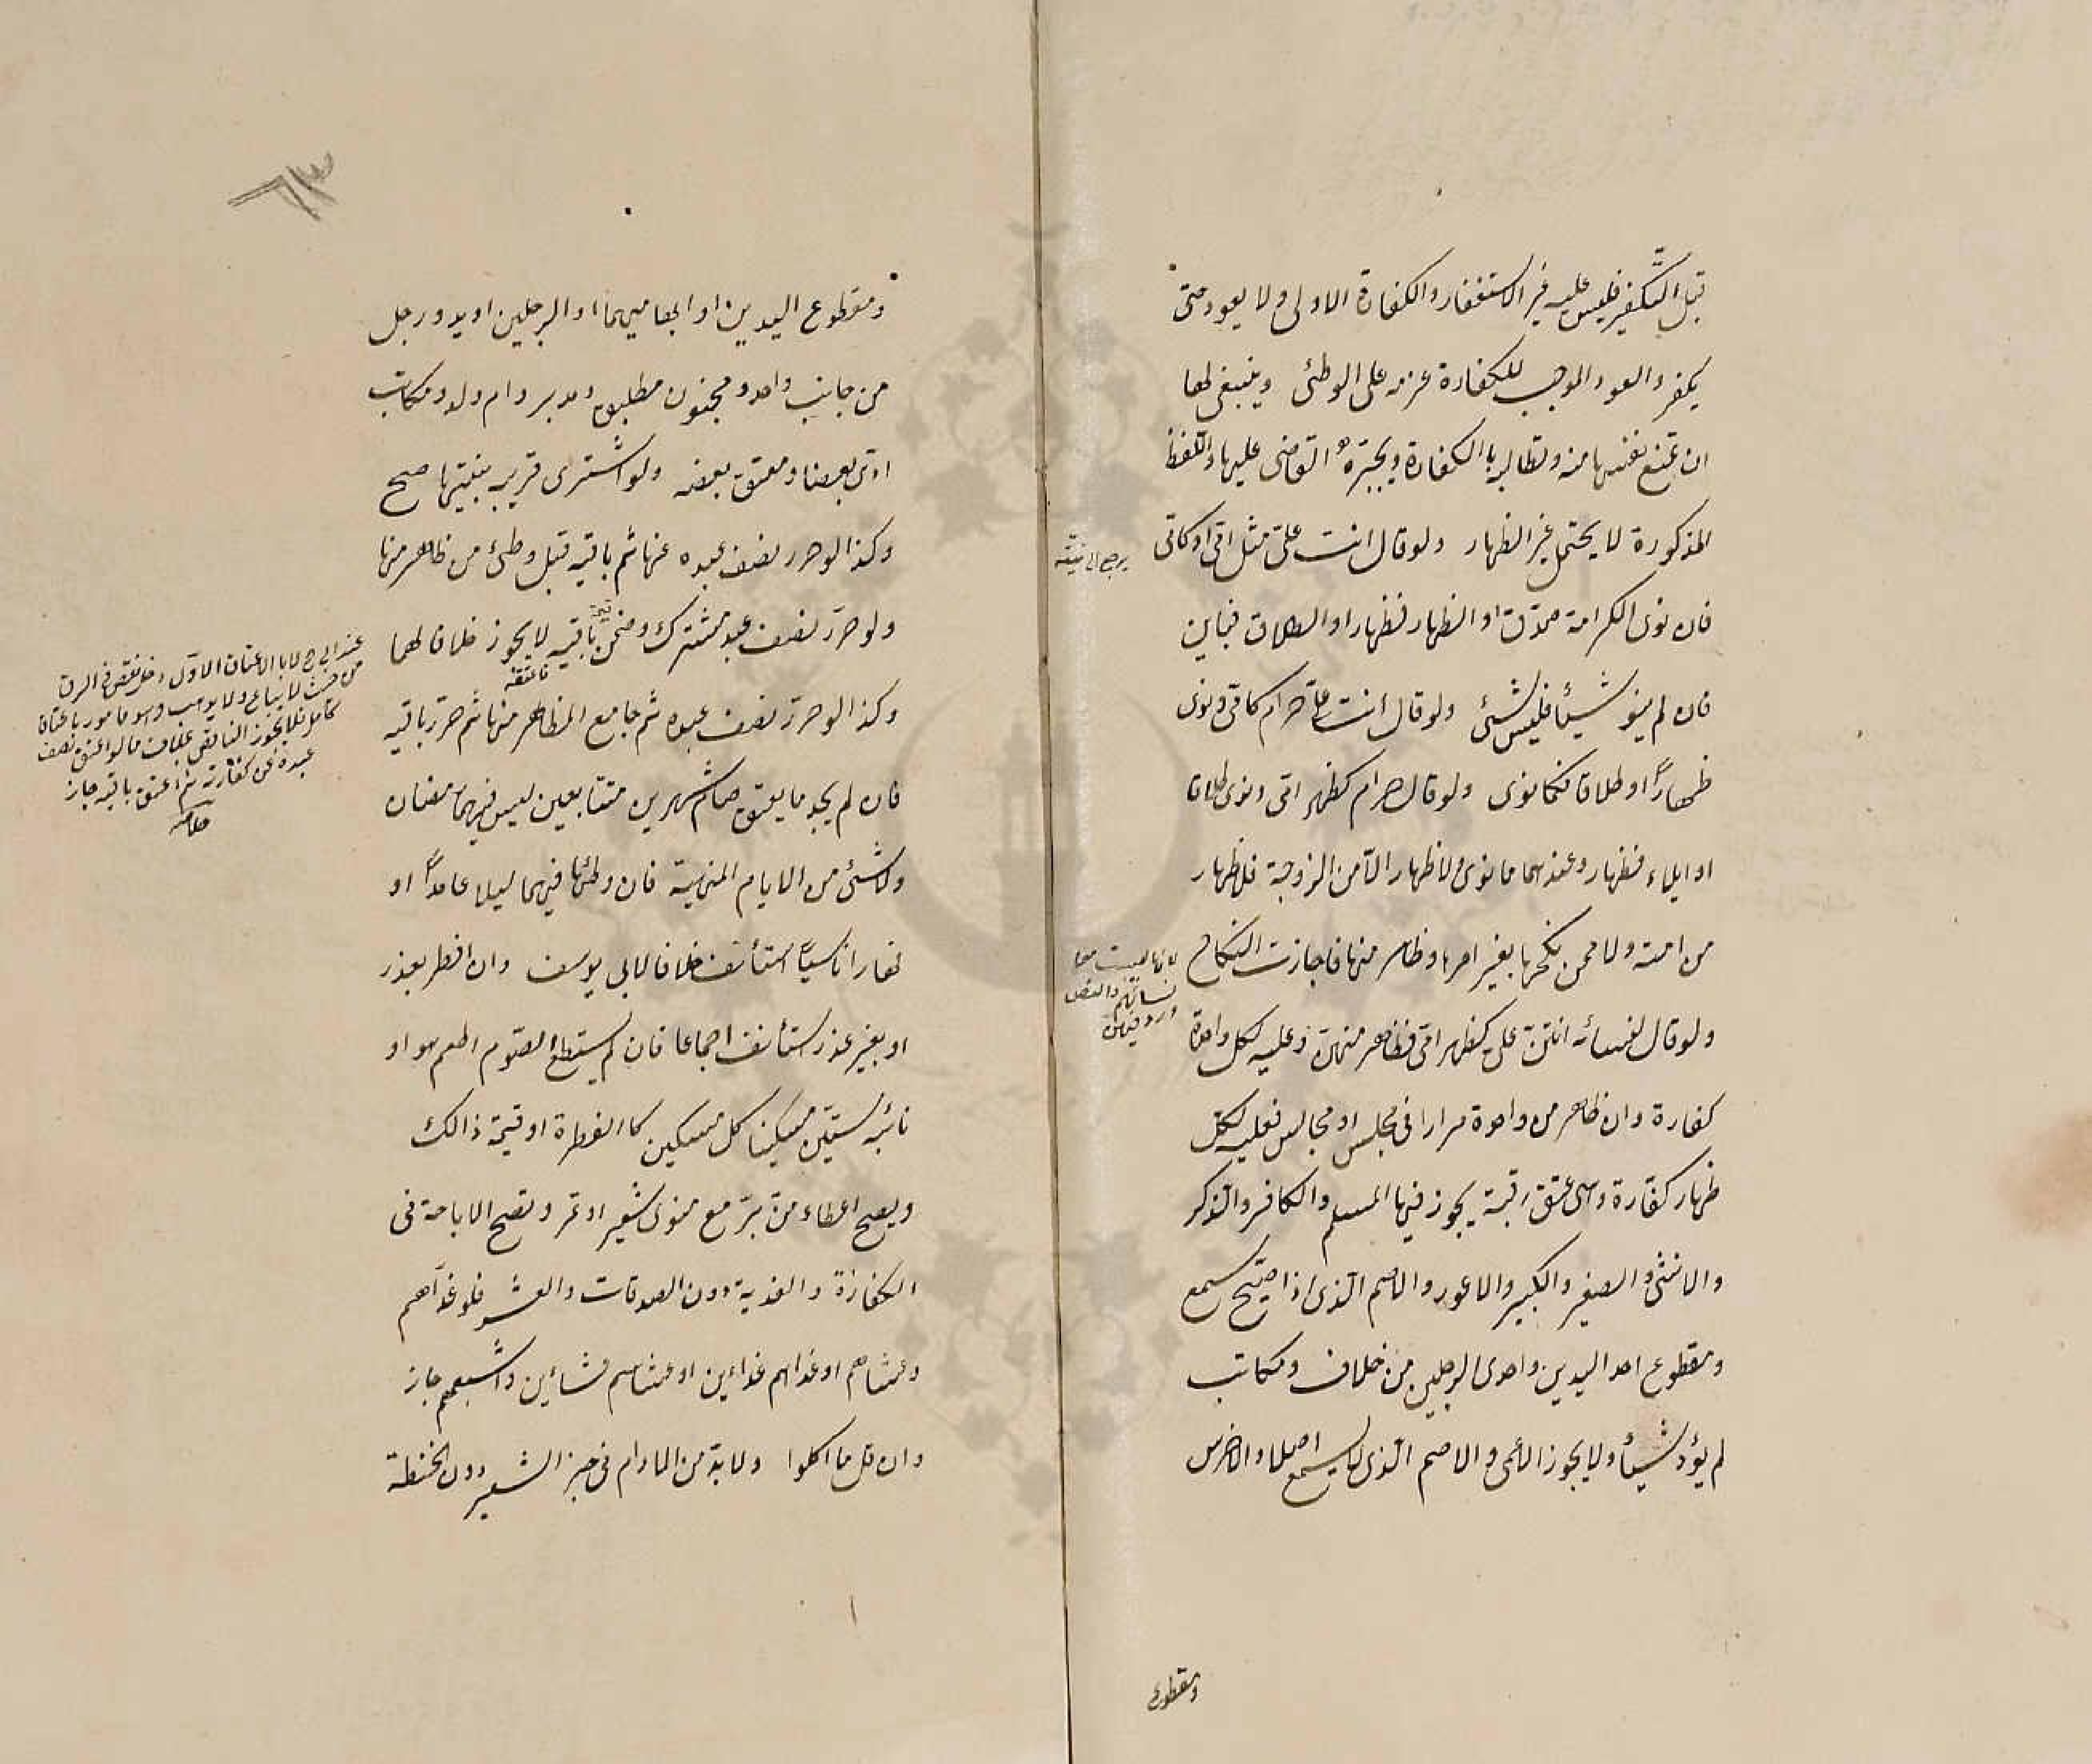 قبل التكفير فليس عليه غير الاستغفار والكفارة الاولى ولا يعود حتى
يكفر والعود الموجب للكفارة عزمه على الوطئ وينبغى لها
ان تمنع نفسها منه وتطالبه بالكفارة ويجبره القاضى عليها واللفظ
المذكورة لا يحتمل غير الظهار ولو قال انت على مثل امى او كامى
يرجع الى نيته
فان نوى الكرامة صدق او الظهار فظهار او الطلاق فباين
فان لم ينو شيئا فليس بشئ ولو قال انت على حرام كامى ونوى
ظهارًا او طلاقا فكما نوى ولو قال حرام كظهر امى ونوى طلاقا
او ايلاء فظهار وعندهما ما نوى ولا ظهار الا من الزوجة فلا ظهار
من امته ولا ممن نكحها بغير امرها وظاهر منها فاجازت النكاح
لانها ليست من
نسائهم والنص
ورد فيهن
ولو قال لنسائه انتن على كظهر امى فظاهر منهن وعليه لكل واحدة
كفارة وان ظاهر من واحدة مرارا فى مجلس او مجالس فعليه لكل
ظهار كفارة وهى عتق رقبة يجوز فيها المسلم والكافر والذكر
والانثى والصغير والكبير والاعور والاصم الذى اذا صيح سمع
ومقطوع احد اليدين واحدى الرجلين من خلاف ومكاتب
لم يؤد شيئا ولا يجوز الاعمى والاصم الذى لا يسمع اصلا والاخرس
ومقطوع
ومقطوع اليدين او ابهاميهما او الرجلين او يد ورجل
من جانب واحد ومجنون مطبق ومدبر وام ولد ومكاتب
ادى بعضا ومعتق بعضه ولو اشترى قريبه بنيتها صح
وكذا لو حرر نصف عبده عنها ثم باقيه قبل وطئ من ظاهر منها
ولو حرر نصف عبد مشترك وضمن باقيه لا يجوز خلافا لهما
قيمة
فاعتقه
وكذا لو حرر نصف عبده ثم جامع المظاهر منها ثم حرر باقيه
فان لم يجد ما يعتق صام شهرين متتابعين ليس فيهما رمضان
ولا شئ من الايام المنهية فان وطئها فيهما ليلا عامدًا او
نهارا ناسيًا استأنف خلافا لابى يوسف وان افطر بعذر
او بغير عذر استأنف اجماعا فان لم يستطع الصوم اطعم هو او
نائبه ستين مسكينا كل مسكين كالفطرة او قيمة ذالك
ويصح اعطاء من بر مع منوى شعير او تمر وتصح الاباحة فى
الكفارة والفدية دون الصدقات والعشر فلو غداهم
وعشاهم او غداهم غدائين او عشاهم عشائين واشبعهم جاز
وان قل ما اكلوا ولا بد من الادام فى خبز الشعير دون الحنطة
كامل فلا يجوز الناقص بخلاف ما لو اعتق نصف
عبده عن كفارته ثم اعتق باقيه جاز